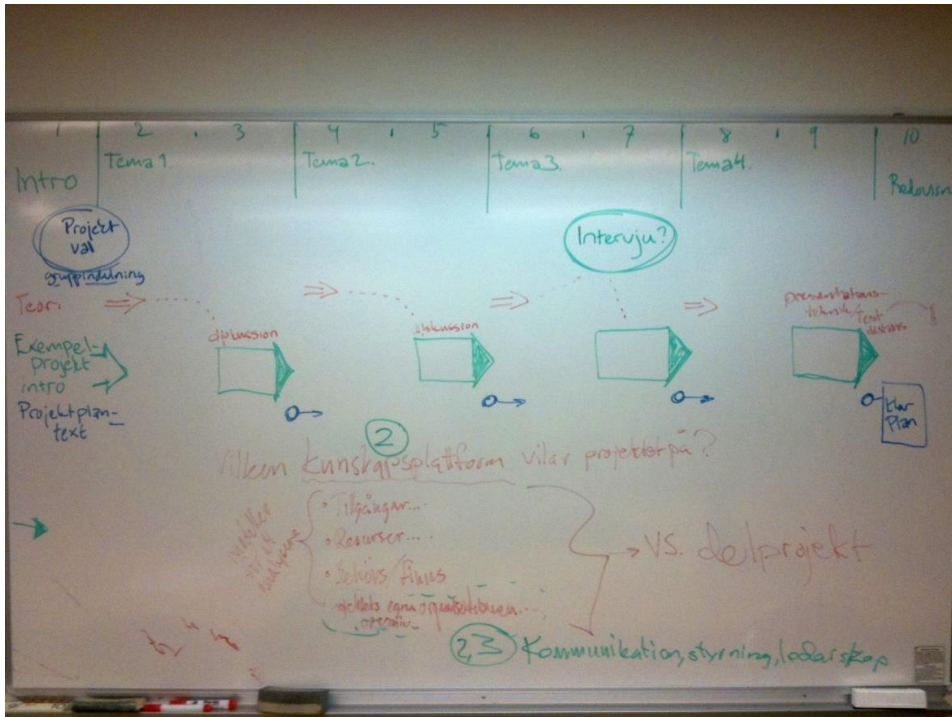 1 2 3 4 5 6 7 8 9 10
Intro
Tema 1.
Tema 2.
Tema 3.
Tema 4.
Redovisn
Projekt
val
gruppindelning
Intervju?
Teori
diskussion
diskussion
presentations-
teknik/Test
Exempel-
projekt
intro
Projektplan-
text
klar
Plan
2
Vilken kunskapsplattform vilar projektet på?
• Tillgångar...
• Resurser....
• Behövs/finns
egna organisationen...
→ VS. delprojekt
2,3 Kommunikation, styrning, ledarskap